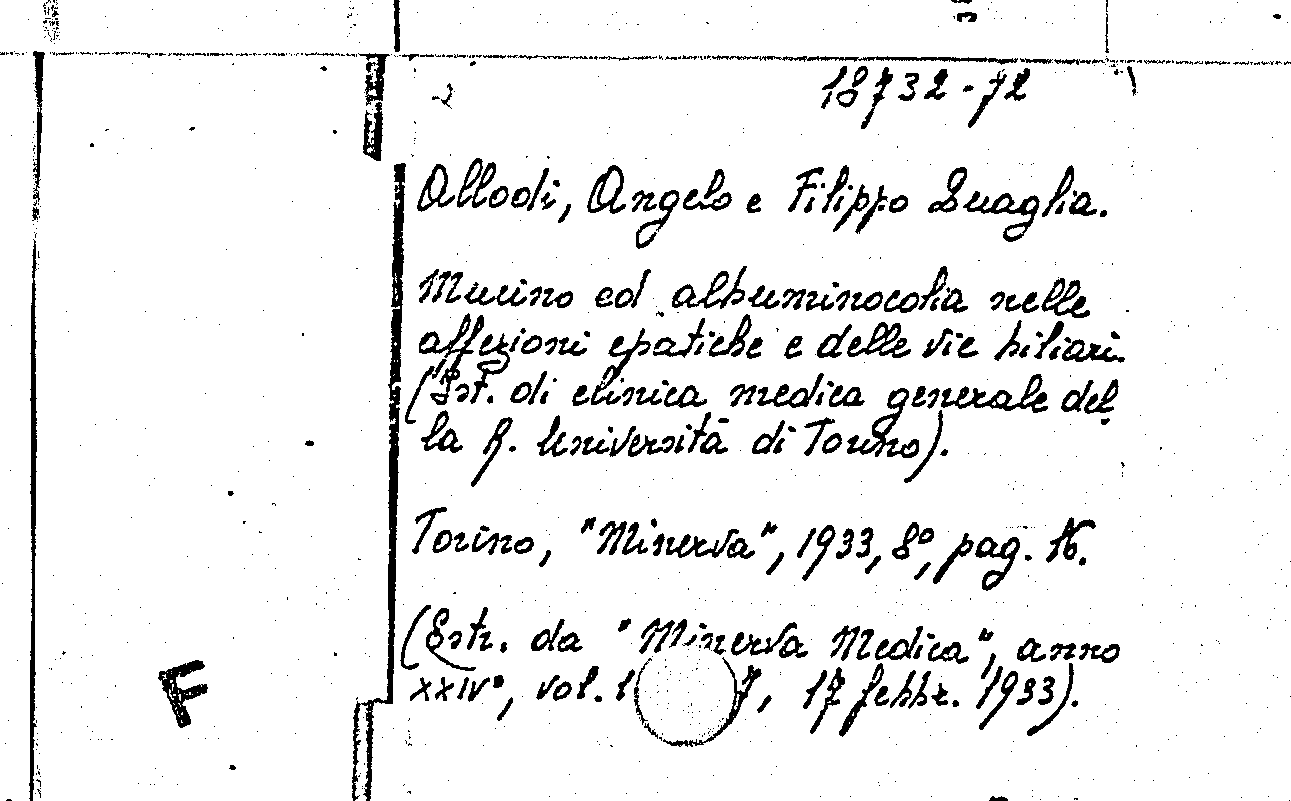 18732-72
Allodi, Angelo e Filippo Quaglia.
Mucino ed albuminocolia nelle
affezioni epatiche e delle vie biliari.
(Ist. di clinica medica generale del
la R. Università di Torino).
Torino, "Minerva", 1933, 8°, pag. 16.
(Estr. da "Minerva Medica", anno
XXIV°, vol. 1 7, 17 febbr. 1933).
F